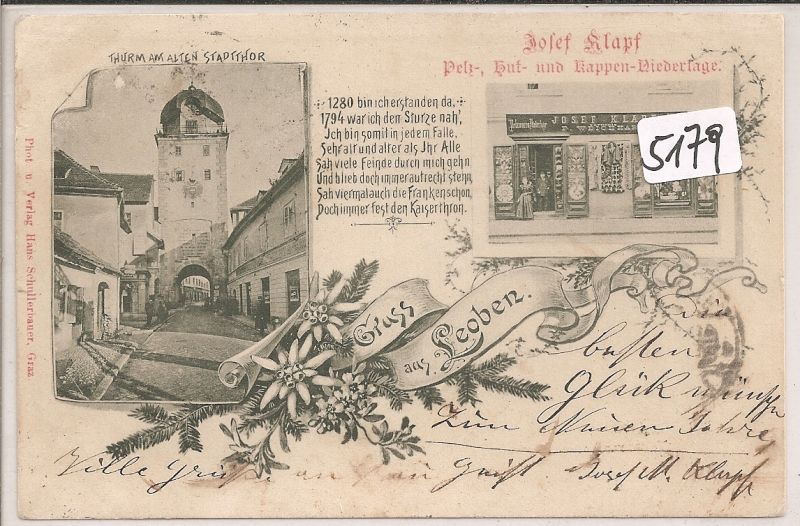 THURM AM ALTEN STADTTHOR
Josef Klapf
Pelz-, Hut- und Kappen-Niederlage.
1280 bin ich erstanden da,
1794 war ich dem Sturze nah',
Ich bin somit in jedem Falle,
Sehr alt und älter als Ihr Alle
Sah viele Feinde durch mich gehn
Und blieb doch immer aufrecht stehn,
Sah viermal auch die Franken schon,
Doch immer fest den Kaiserthron.
JOSEF KLAPF
5179
Phot. u. Verlag Hans Schullerbauer, Graz
Gruss
aus Leoben.
die
besten
Glückwünsche
Zum Neuen Jahre
Ville Grüsse an Josef M. Klapf